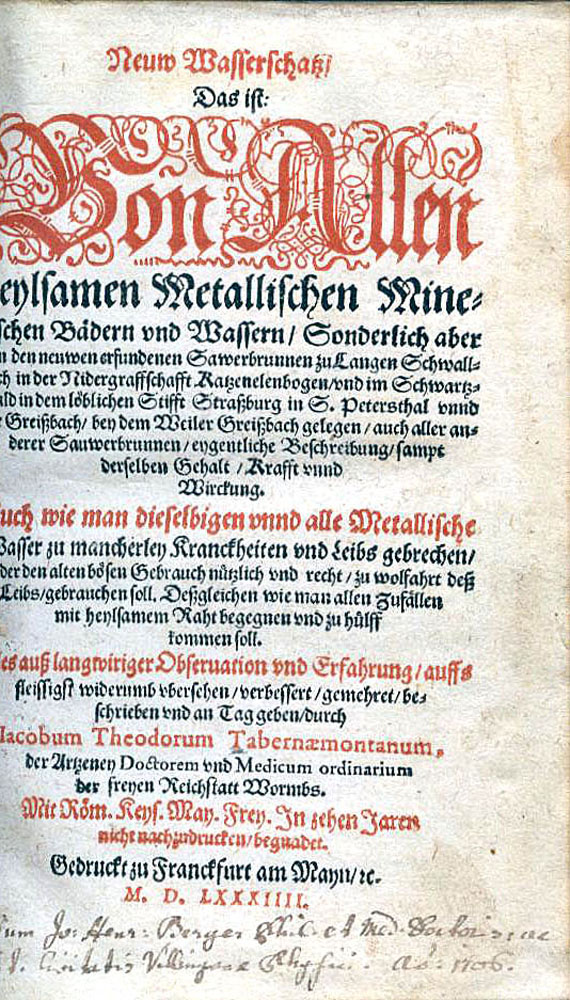 Neuw Wasserschatz/
Das ist:
Von Allen
eylsamen Metallischen Mine-
schen Bädern vnd Wassern/ Sonderlich aber
n den neuwen erfundenen Sawerbrunnen zu Langen Schwall-
ch in der Nidergraffschafft Katzenelenbogen/vnd im Schwartz-
ald in dem löblichen Stifft Straßburg in S. Petersthal vnnd
Greißbach/ bey dem Weiler Greißbach gelegen/ auch aller an-
derer Sauwerbrunnen/ eygentliche Beschreibung/ sampt
derselben Gehalt/ Krafft vnnd
Wirckung.
uch wie man dieselbigen vnnd alle Metallische
Wasser zu mancherley Kranckheiten vnd Leibs gebrechen/
der den alten bösen Gebrauch nützlich vnd recht/ zu wolfahrt deß
Leibs/gebrauchen soll. Deßgleichen wie man allen Zufällen
mit heylsamem Raht begegnen vnd zu hülff
kommen soll.
les auß langwiriger Obseruation vnd Erfahrung/ auffs
fleissigst widerumb vbersehen/verbessert/gemehret/be-
schrieben vnd an Tag geben/durch
Iacobum Theodorum Tabernæmontanum,
der Artzeney Doctorem vnd Medicum ordinarium
der freyen Reichstatt Wormbs.
Mit Röm. Keys. May. Frey. In zehen Jaren
nicht nachzudrucken/ begnadet.
Gedruckt zu Franckfurt am Mayn/ ꝛc.
M. D. LXXXIIII.
Jo: Henr: Berger Phil. et Med. Doctoris
Civitatis Villinganae Physici. Aō: 1706.